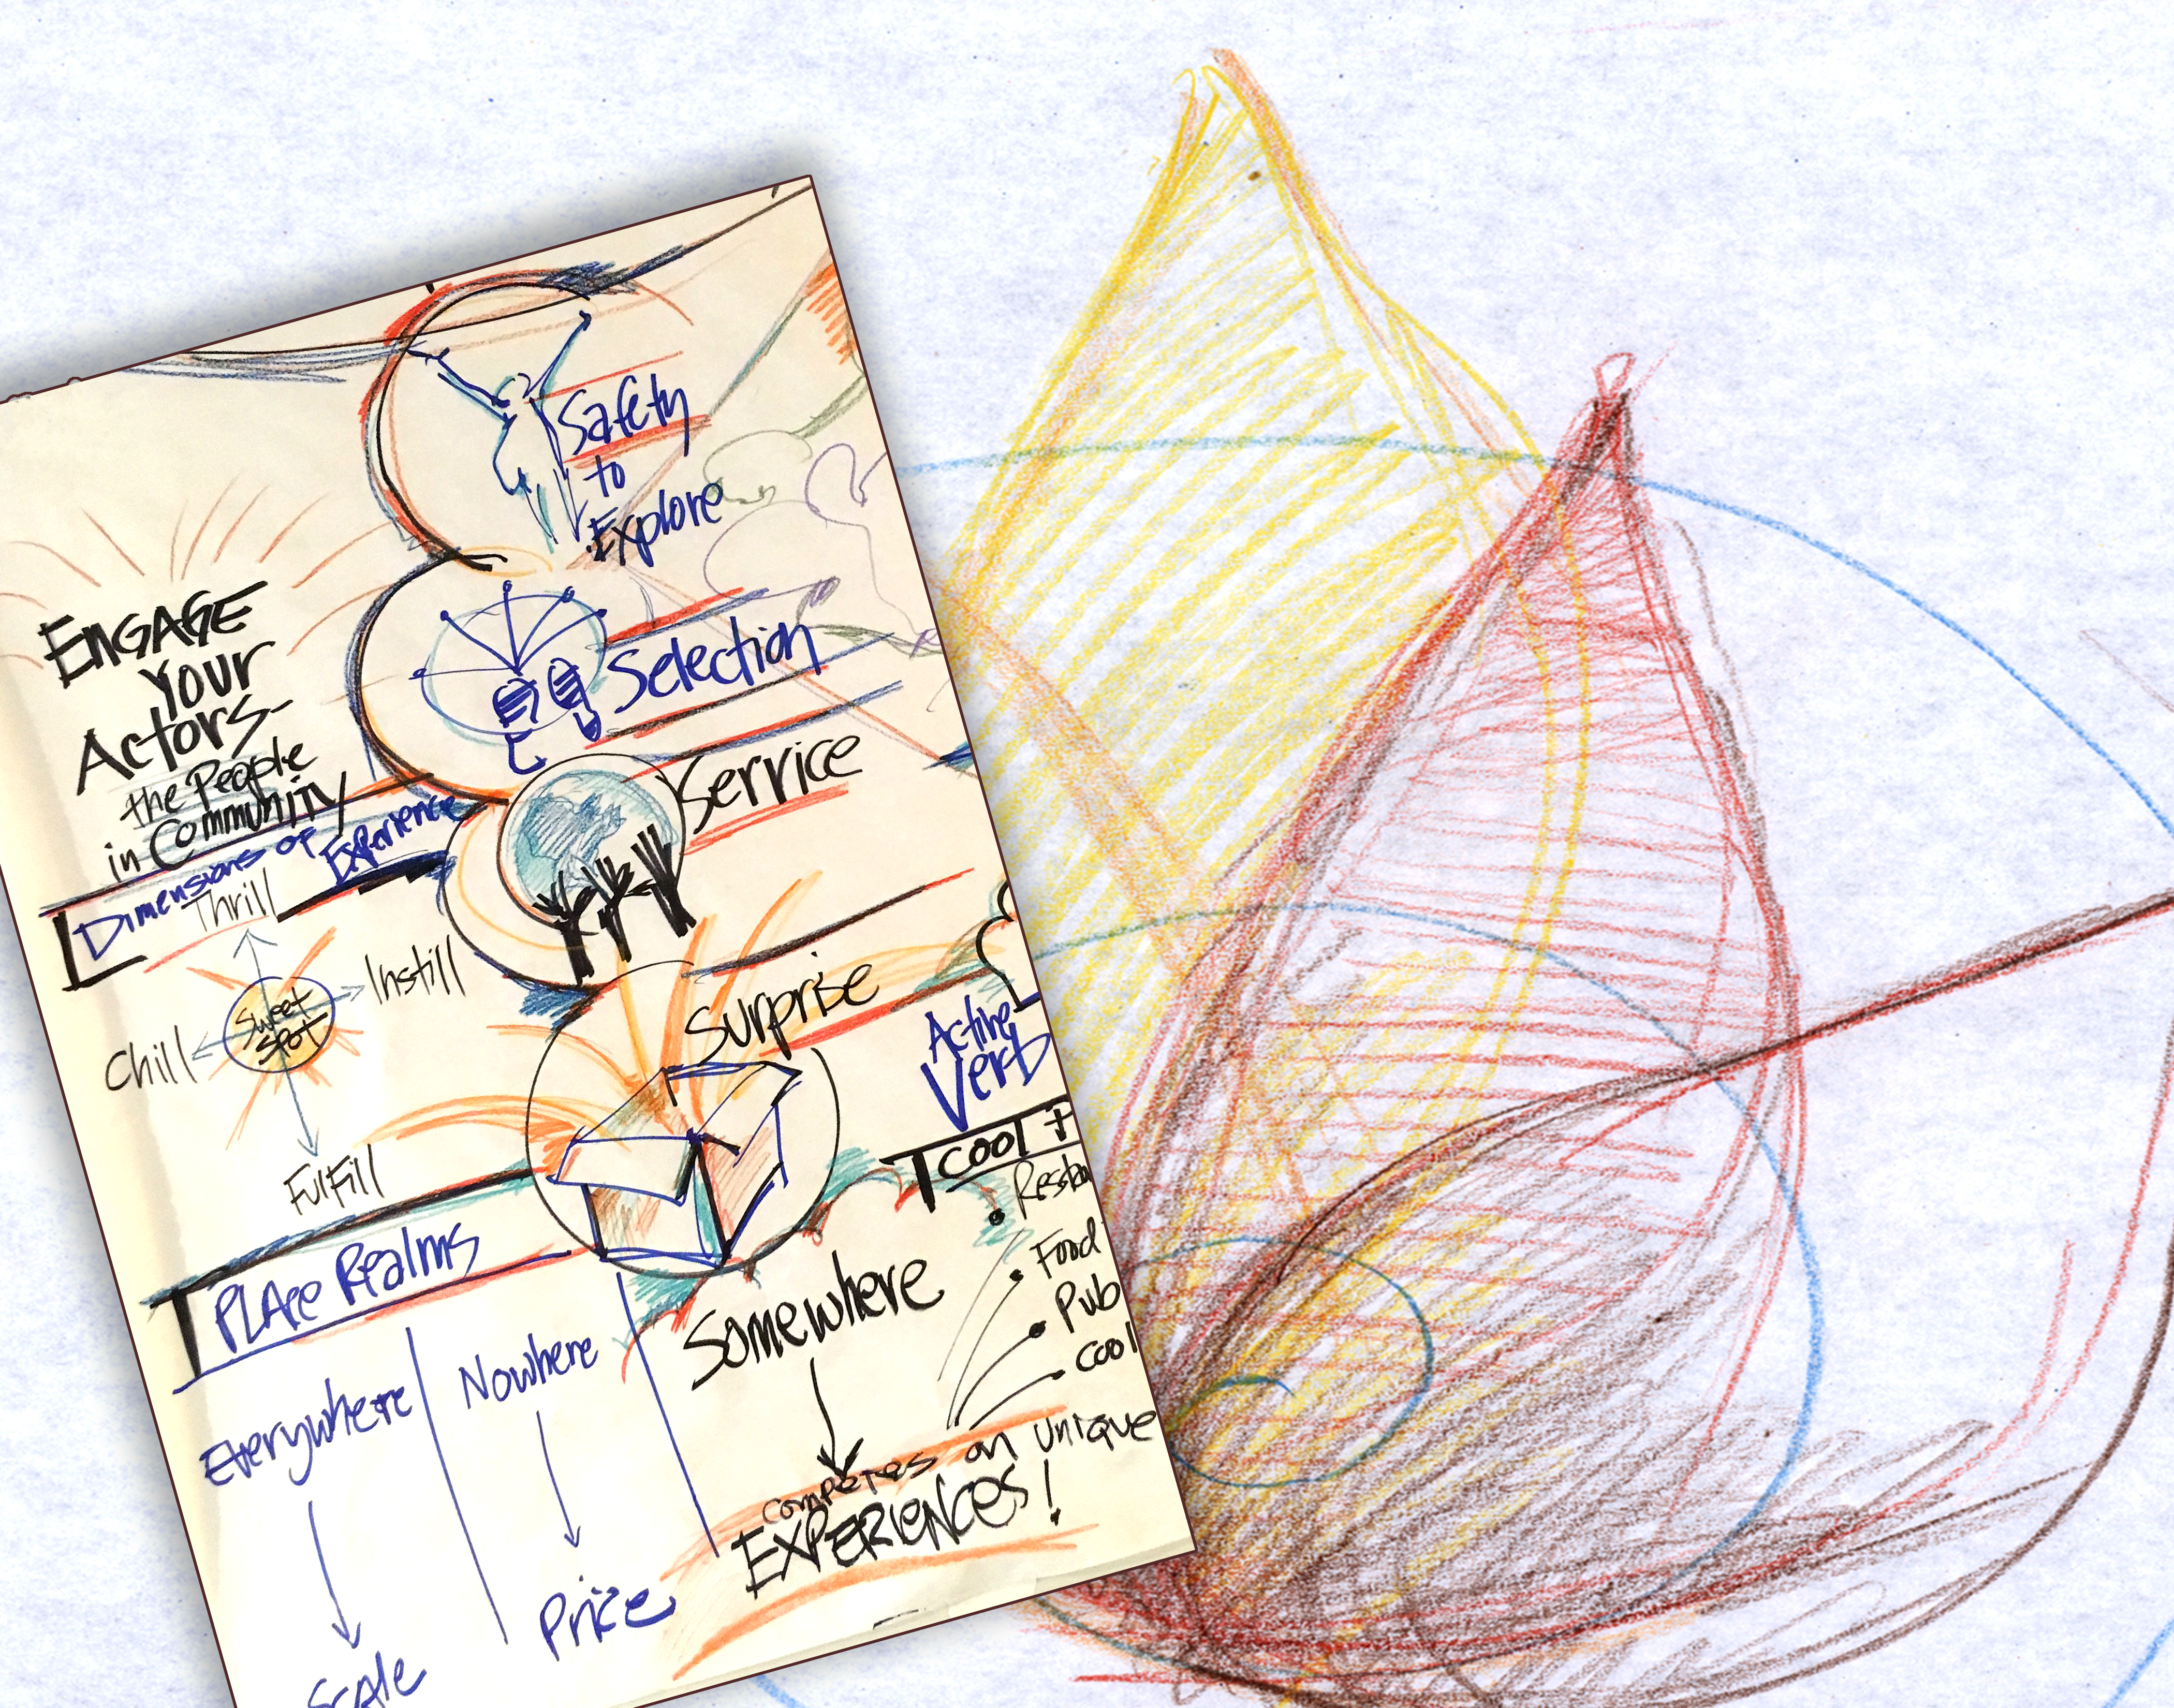 Safety
to
Explore
Selection
Service
Surprise
ENGAGE
Your
Actors-
the People
in Community
Dimensions of Experience
Thrill
Instill
Chill
Sweet
Spot
Fulfill
Active
Verb
cool
Food
Pub
cool
PLAce Realms
Everywhere
Nowhere
Somewhere
Scale
Price
competes on unique
EXPERIENCES!